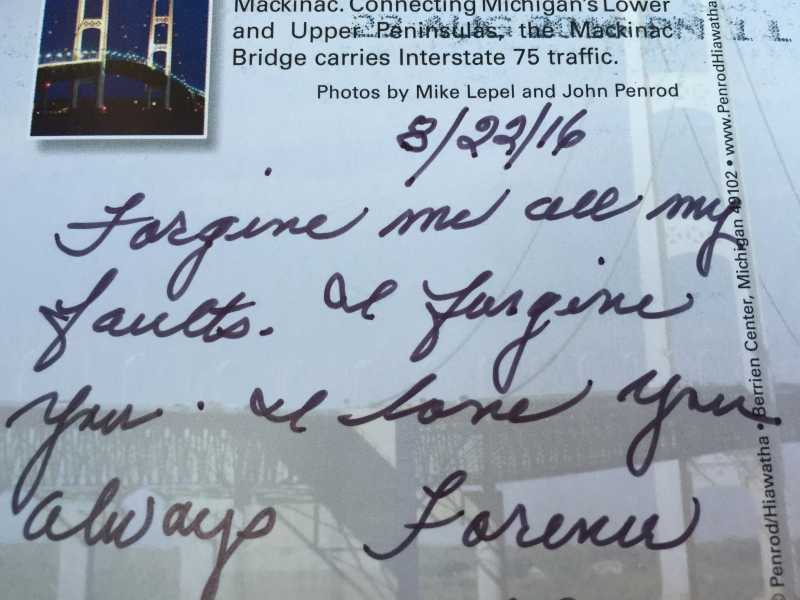 Mackinac. Connecting Michigan's Lower
and Upper Peninsulas, the Mackinac
Bridge carries Interstate 75 traffic.
Photos by Mike Lepel and John Penrod
8/22/16
Forgive me all my
faults. I forgive
you. I love you
always Forever
© Penrod/Hiawatha • Berrien Center, Michigan 49102 • www.PenrodHiawatha